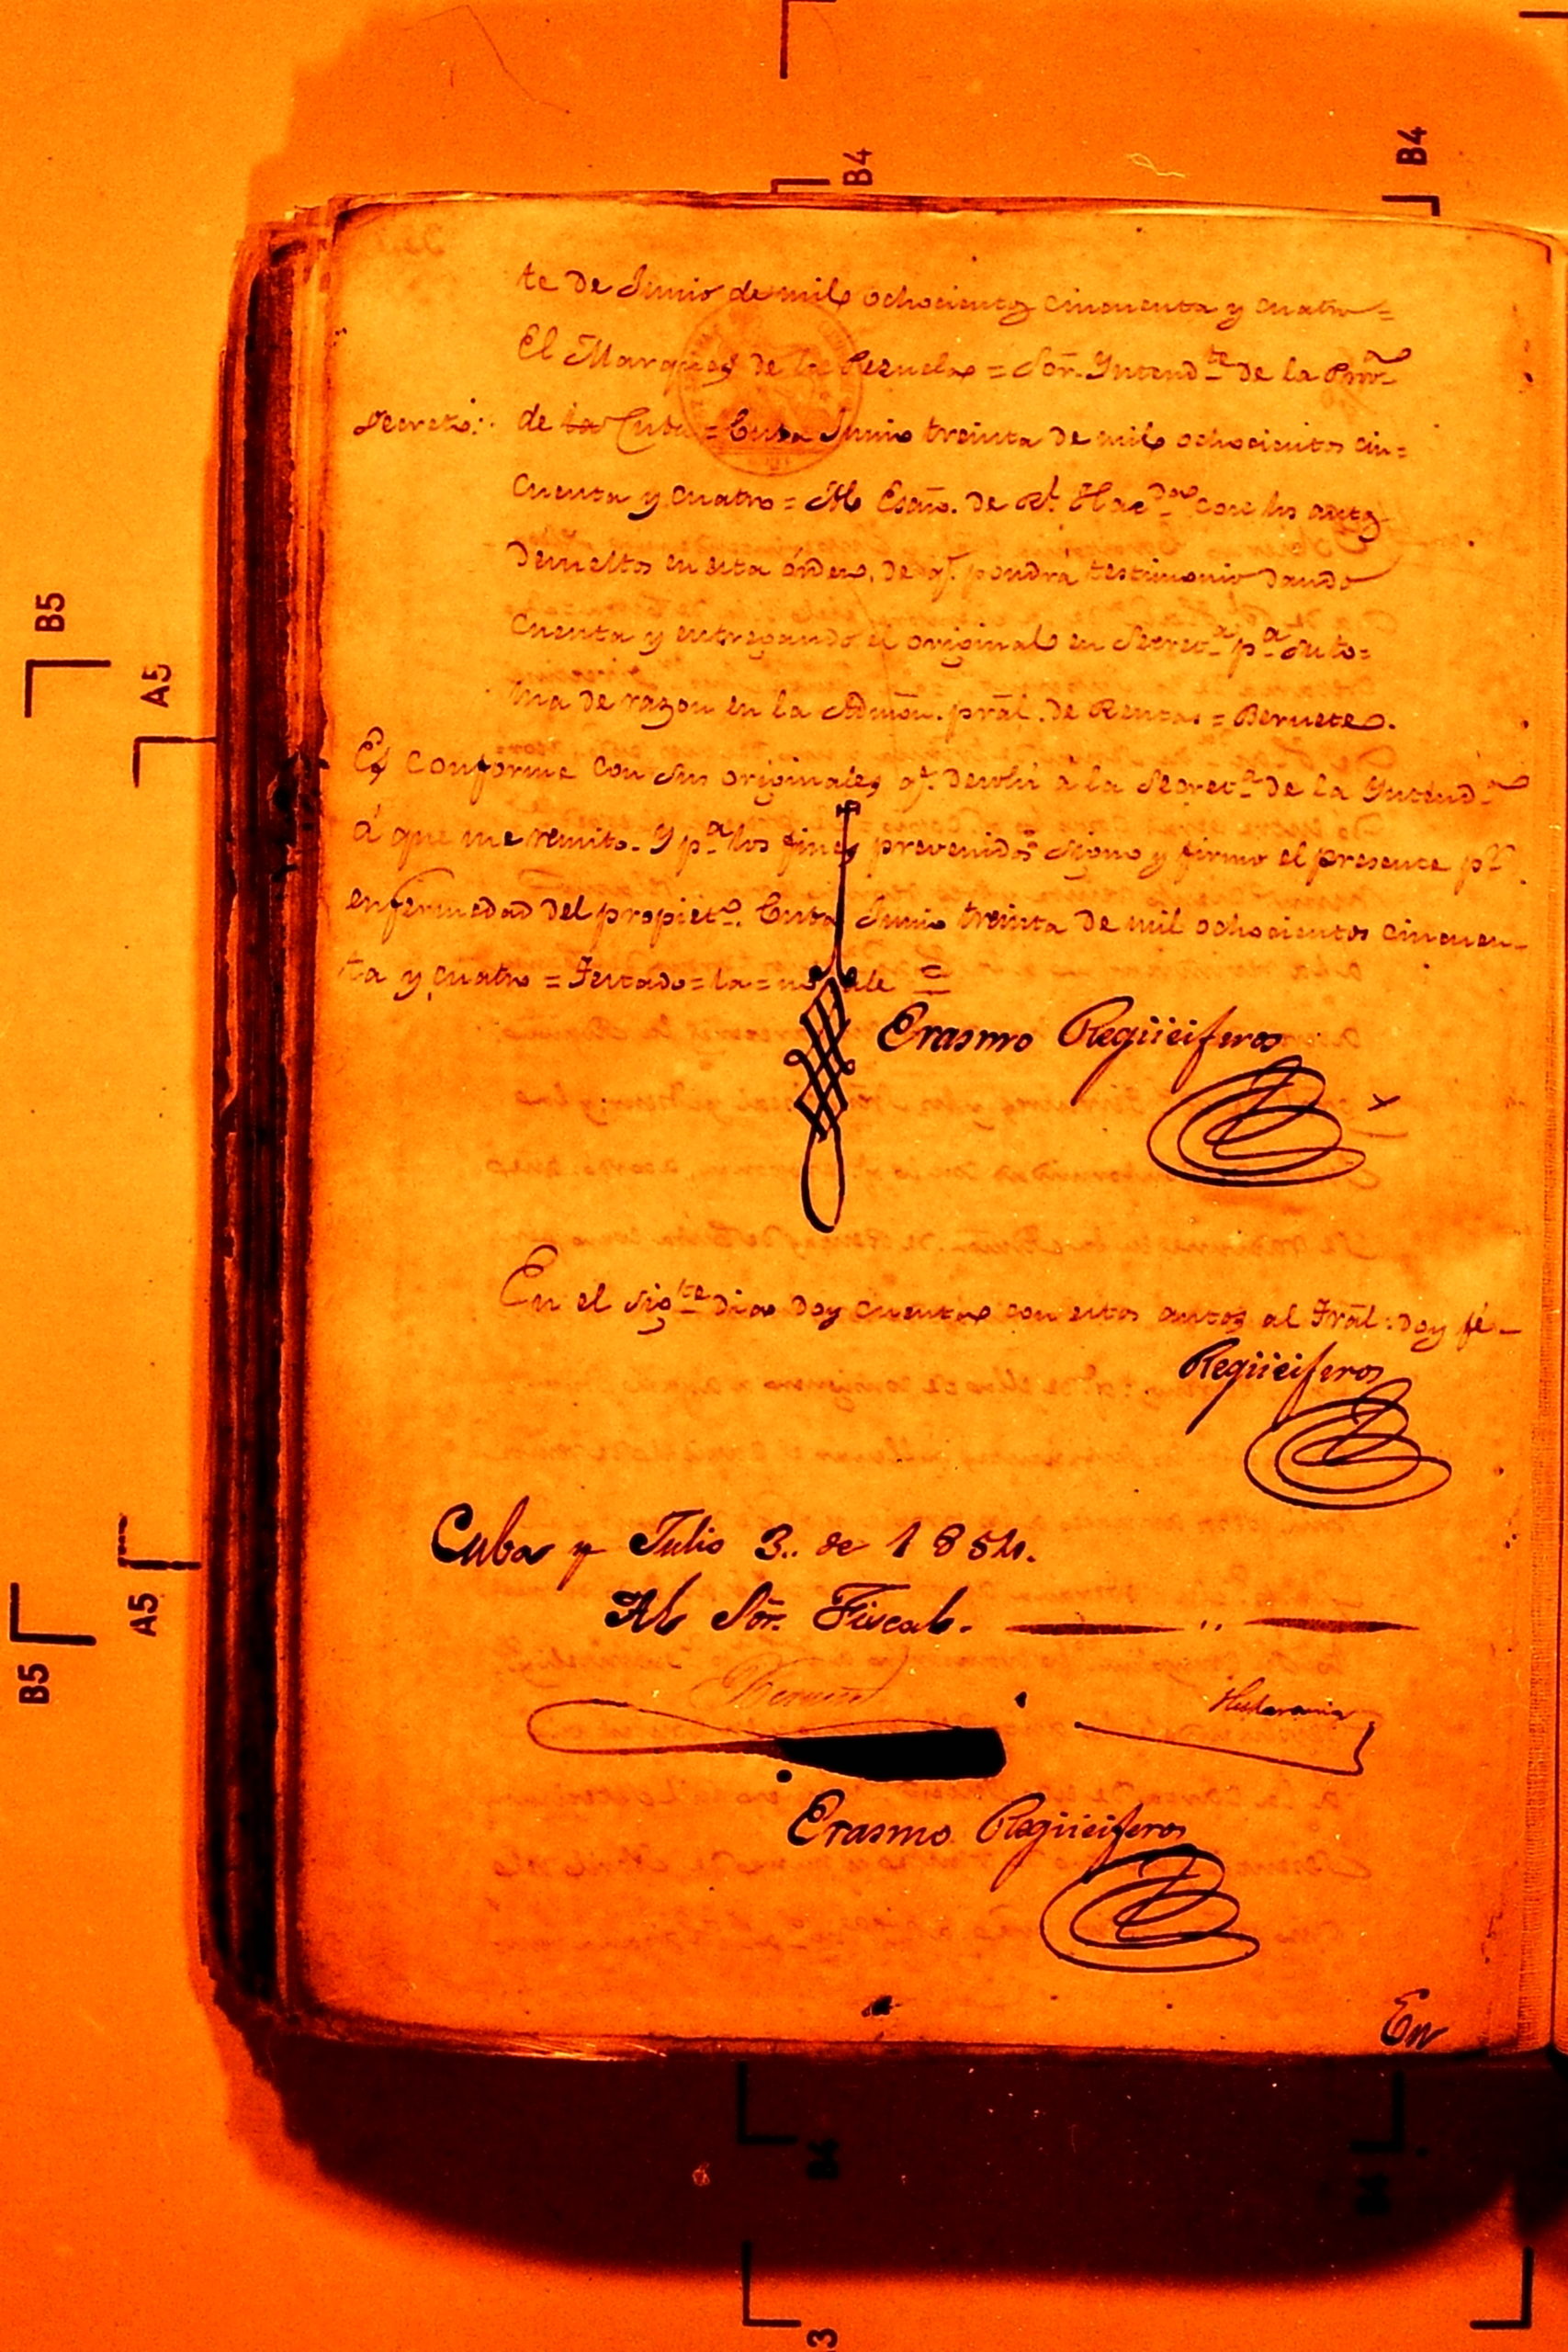 te de Junio de mil ochocientos cincuenta y cuatro=
El Marques de la Pezuela = Sor. Yntendte de la Prova
Decreto: de la Cuba = Cuba Junio treinta de mil ochocientos cin=
cuenta y cuatro = Al Escno. de Rl. Hacda con los autos
devueltos en esta órden, de qe. pondrá testimonio dando
cuenta y entregando el original en Secreta pa su to=
ma de razon en la Admon. pral. de Rentas = Beruete.
Es conforme con sus originales qe. devolví á la Secreta de la Yntenda
á que me remito. Y pa los fines prevenidos signo y firmo el presente pr
enfermedad del propieto. Cuba Junio treinta de mil ochocientos cincuen-
ta y cuatro = Testado = la = no vale =
Erasmo Regüeiferos
En el sigte dia doy cuenta con estos autos al Tral: doy fé-
Regüeiferos
Cuba y Julio 3.. de 1854.
Al Sor. Fiscal.
Beruete
Erasmo Regüeiferos
En
B4
B4
B5
A5
A5
B5
B4
B4
3